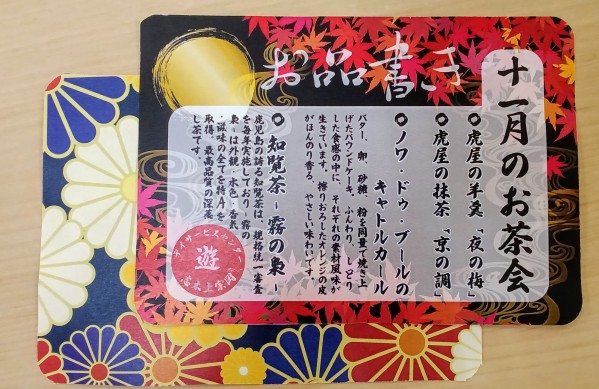 お品書き
十一月のお茶会
虎屋の羊羹「夜の梅」
虎屋の抹茶「京の調」
ノワ・ドゥ・ブールの
キャトルカール
バター、卵、砂糖、粉を同量で焼き上
げたパウンドケーキ。ふんわり、しっとり
した食感の中に、それぞれの素材風味が
生きています。擦りおろしたオレンジの皮
がほんのり香る、やさしい味わいです。
知覧茶 -霧の梟-
鹿児島の誇る知覧茶は、規格統一審査
を毎年実施しており、霧の
梟は外観・水色・香気
・滋味の全てを特Aを
取得。最高品質の深蒸
し茶です。
デイサービスセンター
遊
志木上宗岡